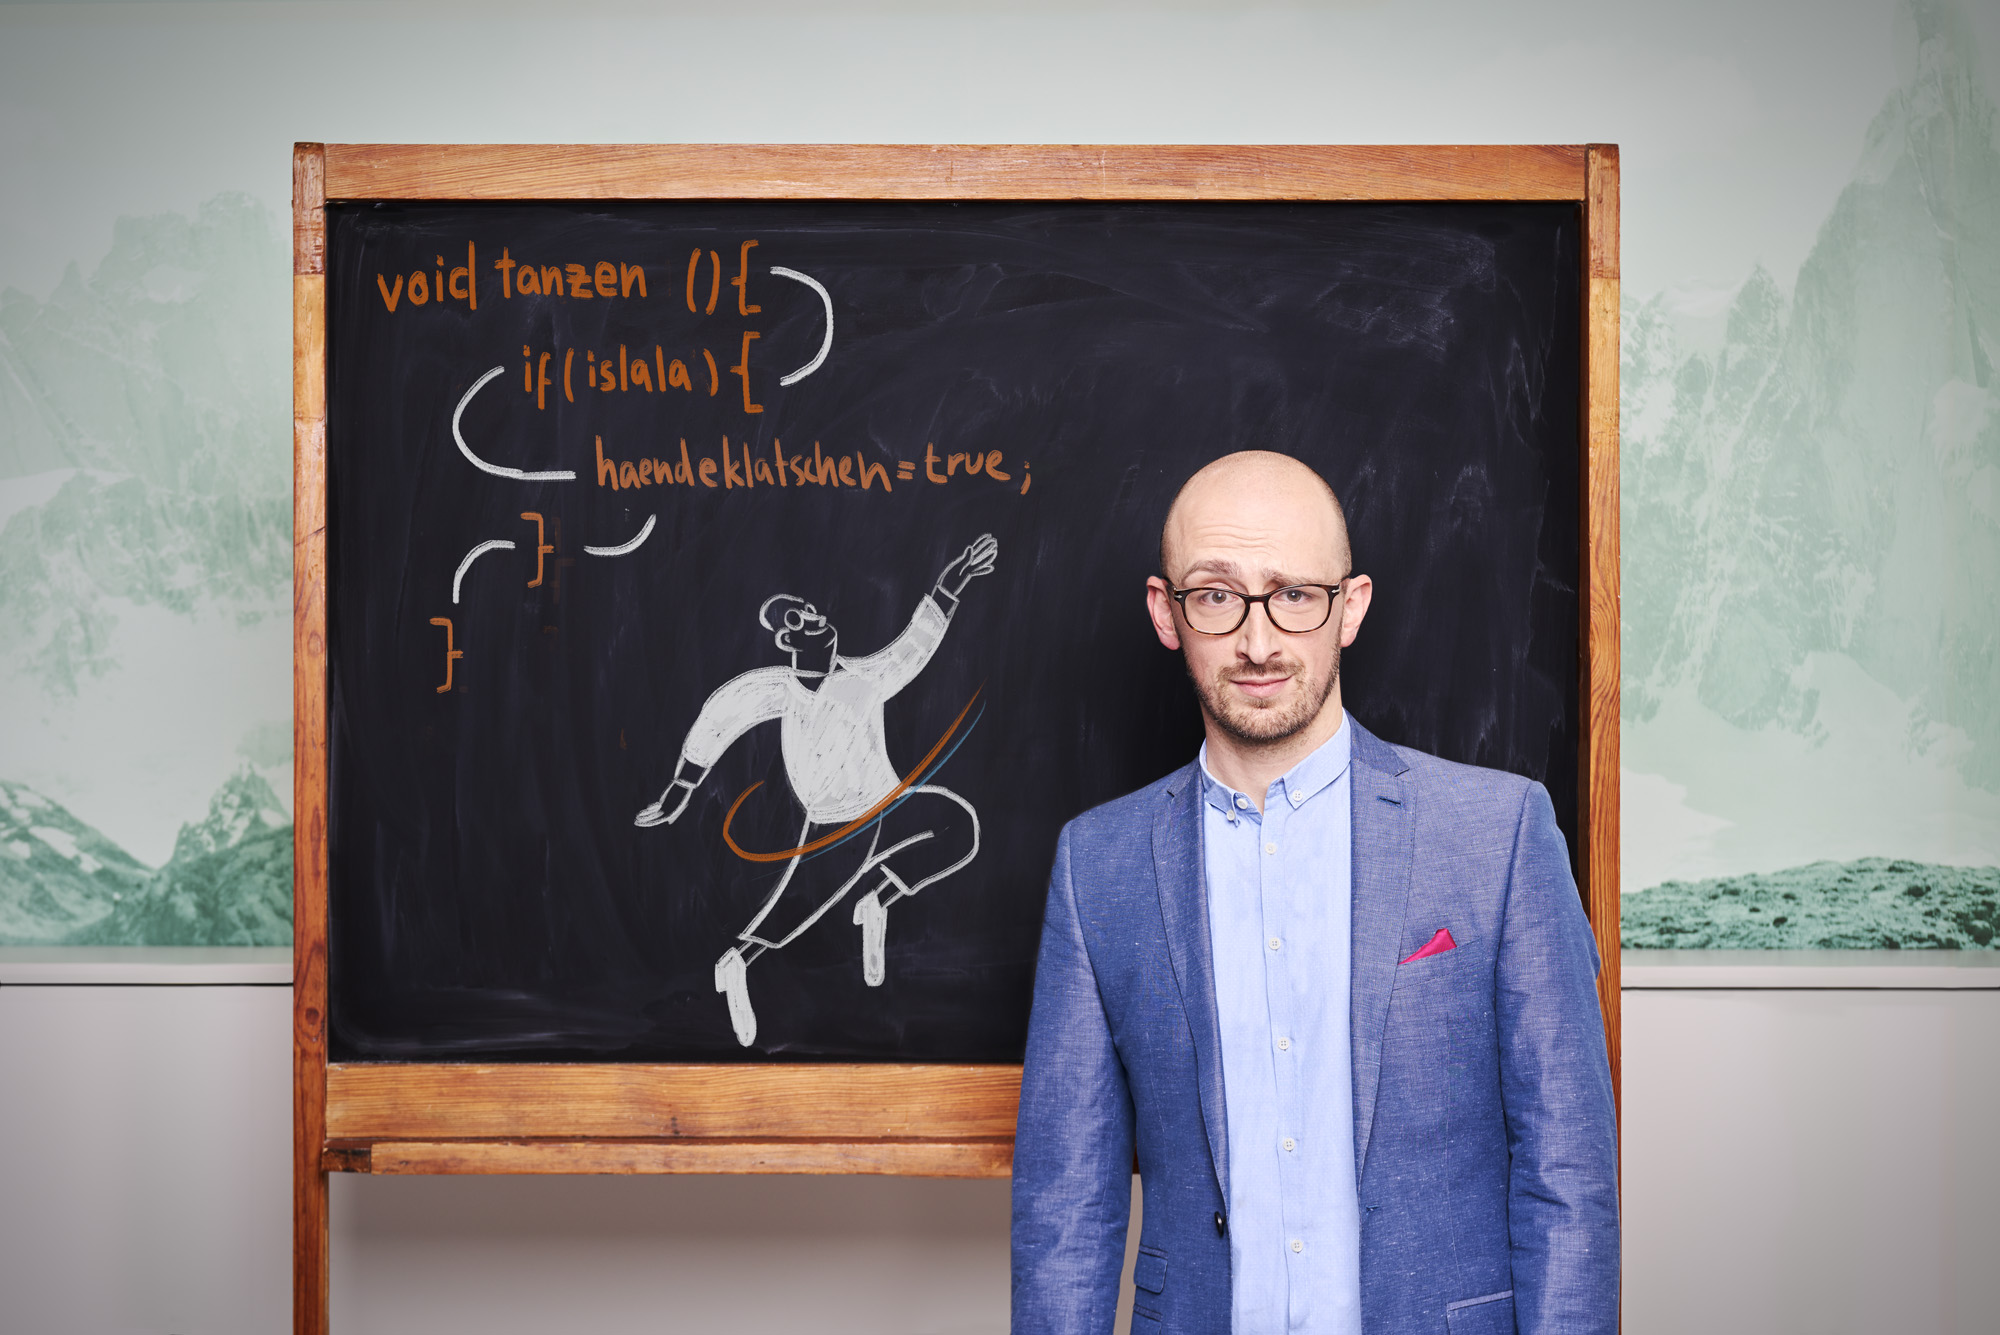 void tanzen (){
if(islala){
haendeklatschen=true;
}
}